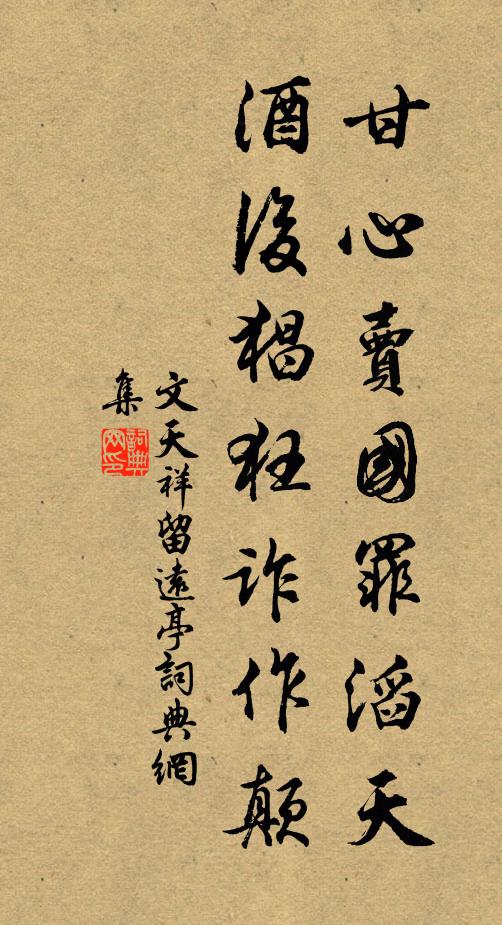 甘心賣國罪滔天
酒後猖狂詐作顛
文天祥留遠亭詞典網
集
詞典
网印